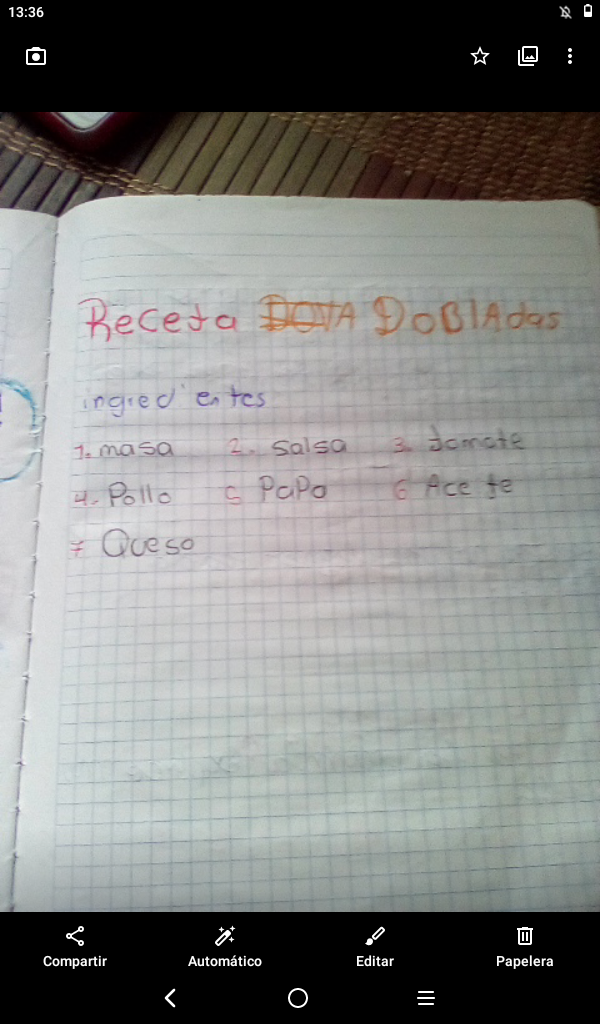 13:36
Receta DOTA DOBlAdas
ingredientes
1. masa 2. salsa 3. tomate
4. Pollo 5 PaPa 6 Acete
7 Queso
Compartir Automático Editar Papelera